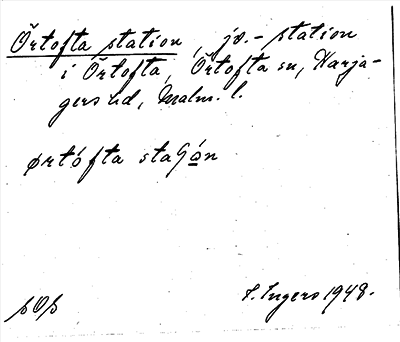 Örtofta station, jv.-station
i Örtofta, Örtofta sn, Harja-
gers hd, Malm. l.
ørtófta staʃón
I. Ingers 1948.